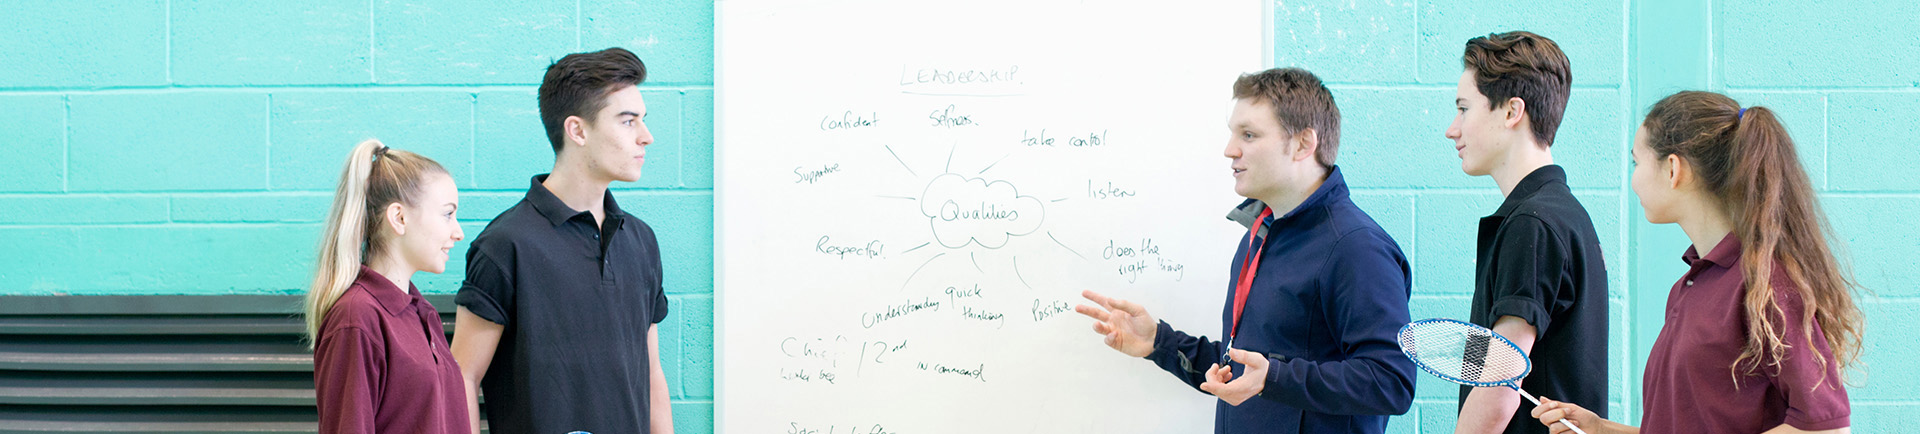 LEADERSHIP.
Confident
Selfness.
take control
Supportive
listen
Qualities
Respectful.
does the
right thing
Understanding
quick
thinking
Positive
Chief
/ 2nd
in command